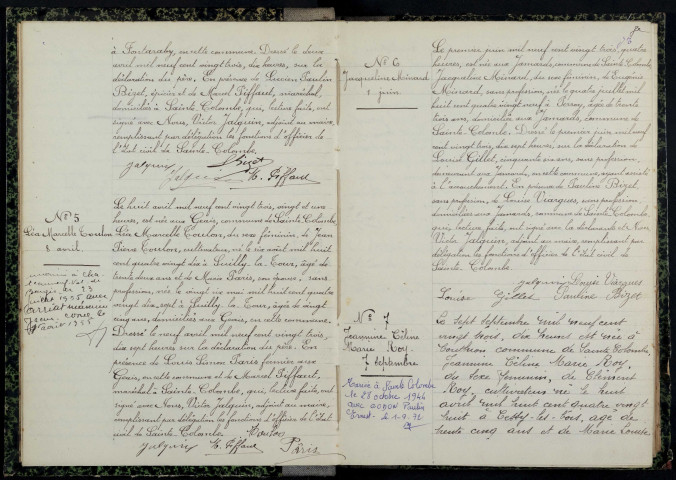 à Fontaraby, en cette commune. Dressé le deux
avril mil neuf cent vingt trois, dix heures, sur la
déclaration du père. En présence de Lucien Paulin
Bizet, épicier et de Marcel Piffault, maréchal,
domiciliés à Sainte Colombe, qui, lecture faite, ont
signé avec Nous, Victor Jalquin, adjoint au maire,
remplissant par délégation les fonctions d'officier de
l'état civil de Sainte-Colombe.
Jalquin Bizet
M. Piffault
N° 5
Léa Marcelle Toulon
8 avril
Le huit avril mil neuf cent vingt trois, vingt et une
heures, est née aux Giois, commune de Sainte Colombe
Léa Marcelle Toulon, du sexe féminin, de Jean
Pierre Toulon, cultivateur, né le six août mil huit
cent quatre vingt dix à Suilly-la-Tour, âgé de
trente deux ans et de Maria Paris, son épouse, sans
profession, née le vingt six mai mil huit cent quatre
vingt dix sept à Suilly la Tour, âgée de vingt
cinq ans, domiciliés aux Giois, en cette commune.
Dressé le neuf avril mil neuf cent vingt trois,
dix sept heures sur la déclaration du père. En
présence de Louis Simon Paris fermier aux
Giois, en cette commune et de Marcel Piffault,
maréchal à Sainte Colombe, qui, lecture faite, ont
signé avec Nous, Victor Jalquin, adjoint au maire,
remplissant par délégation les fonctions d'officier de l'état
civil de Sainte-Colombe. Toulon
Jalquin M. Piffault Paris
N° 6
Jacqueline Ménard
1 juin
Le premier juin mil neuf cent vingt trois, quatre
heures, est née aux Jamards, commune de Sainte Colombe,
Jacqueline Ménard, du sexe féminin, de Eugénie
Ménard, sans profession, née le quatre juillet mil
huit cent quatre vingt neuf à Perroy, âgée de trente
trois ans, domiciliée aux Jamards, commune de
Sainte-Colombe. Dressé le premier juin mil neuf
cent vingt trois, dix sept heures, sur la déclaration de
Louise Gillet, cinquante six ans, sans profession,
demeurant aux Jamards, en cette commune, ayant assisté
à l'accouchement. En présence de Pauline Bizet,
sans profession, de Louise Viargues, sans profession,
domiciliées aux Jamards, commune de Sainte Colombe,
qui, lecture faite, ont signé avec la déclarante et Nous
Victor Jalquin, adjoint au maire, remplissant par
délégation les fonctions d'officier de l'état civil de
Sainte Colombe.
Jalquin Louise Viargues
Louise Gillet Pauline Bizet
N° 7
Jeannine Céline
Marie Roy
7 Septembre
Mariée à Sainte Colombe
le 28 octobre 1946
Le sept septembre mil neuf cent
vingt trois, dix heures est née à
commune de Sainte Colombe,
Jeannine Céline Marie Roy,
du sexe féminin, de Clément
Roy, cultivateur né le huit
avril mil huit cent quatre vingt
huit à âgé de
trente cinq ans et de Marie Louise